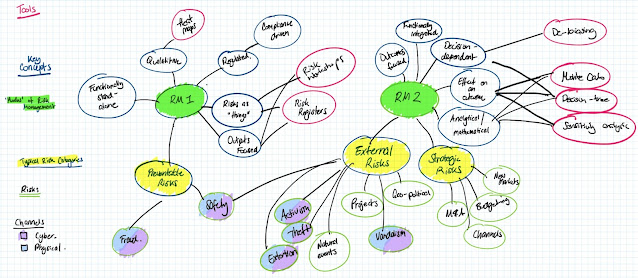 Tools
Heat
maps
Compliance
driven
Functionally
integrated
De-biasing
Key
Concepts
Qualitative
Regulated
Outcomes
focused
Decision
dependent
Risk
Workshops
Functionally
stand-
alone
RM1
RM2
Effect on
an
outcome
Monte Carlo
"Modes" of Risk
Management
Risks as
"things"
Risk
Registers
Decision-tree
Outputs
Focused
Analytical/
mathematical
Sensitivity analysis
Typical Risk Categories
Preventable
Risks
External
Risks
Strategic
Risks
New
Markets
Risks
Safety
Activism
Projects
Geo-political
M&A
Budgeting
Channels
Cyber.
Physical.
Fraud.
Theft
Extortion
Natural
events
Vandalism
Channels